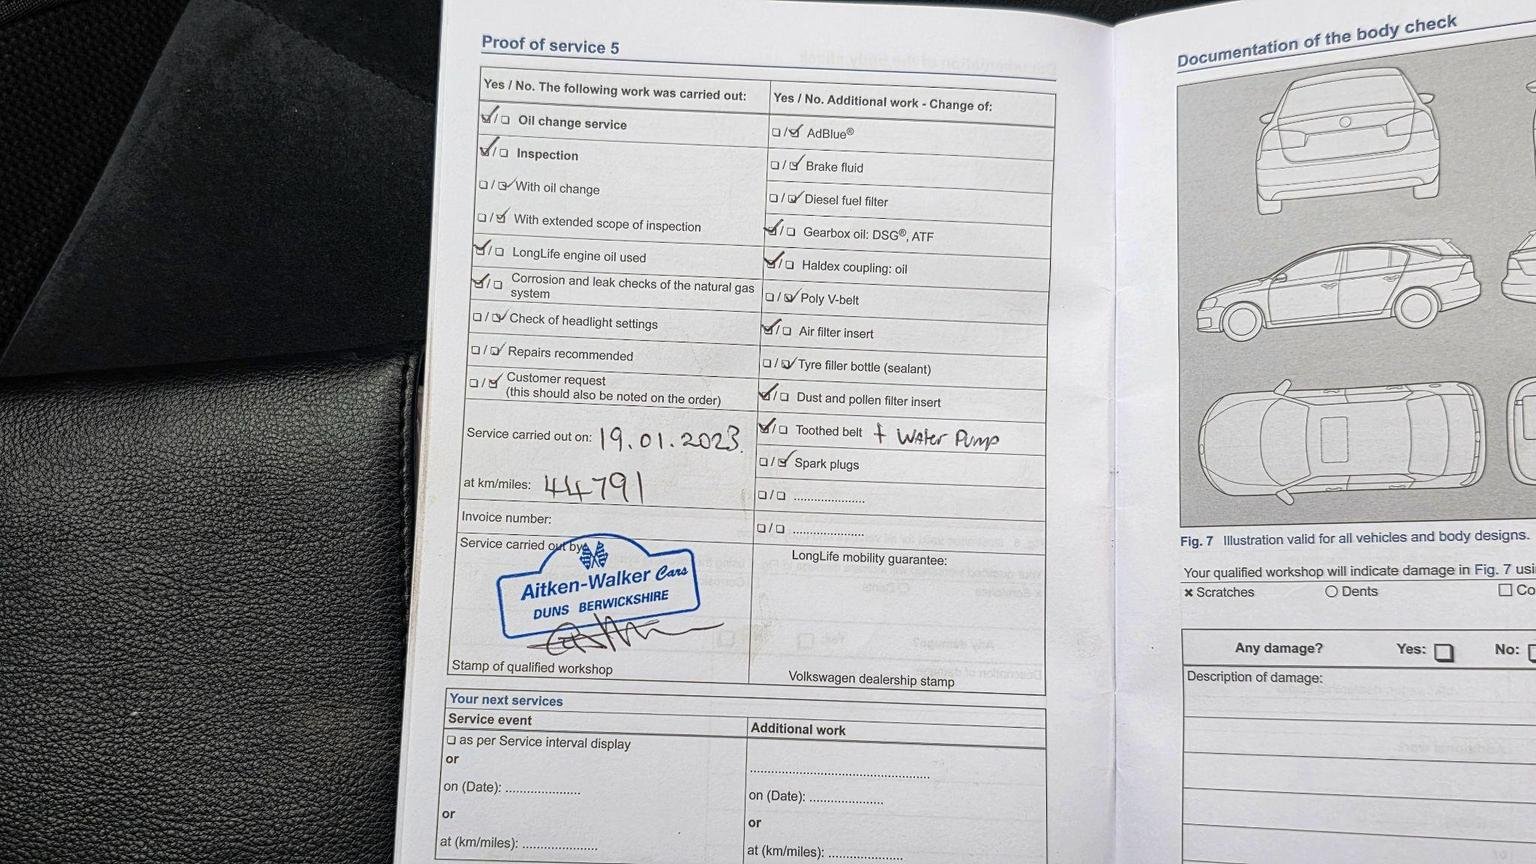 Proof of service 5
Yes / No. The following work was carried out:
Oil change service
Inspection
With oil change
With extended scope of inspection
LongLife engine oil used
Corrosion and leak checks of the natural gas
system
Check of headlight settings
Repairs recommended
Customer request
(this should also be noted on the order)
Service carried out on: 19.01.2023.
at km/miles: 44791
Invoice number:
Service carried out by:
Aitken-Walker Cars
DUNS BERWICKSHIRE
Stamp of qualified workshop
Yes / No. Additional work - Change of:
AdBlue®
Brake fluid
Diesel fuel filter
Gearbox oil: DSG®, ATF
Haldex coupling: oil
Poly V-belt
Air filter insert
Tyre filler bottle (sealant)
Dust and pollen filter insert
Toothed belt + Water Pump
Spark plugs
LongLife mobility guarantee:
Volkswagen dealership stamp
Your next services
Service event
as per Service interval display
or
on (Date): ....................
or
at (km/miles): ....................
Additional work
on (Date): ....................
or
at (km/miles): ....................
Documentation of the body check
Fig. 7 Illustration valid for all vehicles and body designs.
Your qualified workshop will indicate damage in Fig. 7
Scratches
Dents
Any damage? Yes: No:
Description of damage: